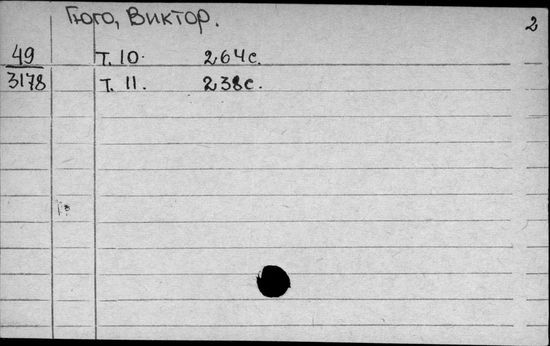 Гюго, Виктор.
2
49 Т. 10. 264с.
3178 Т. 11. 238с.